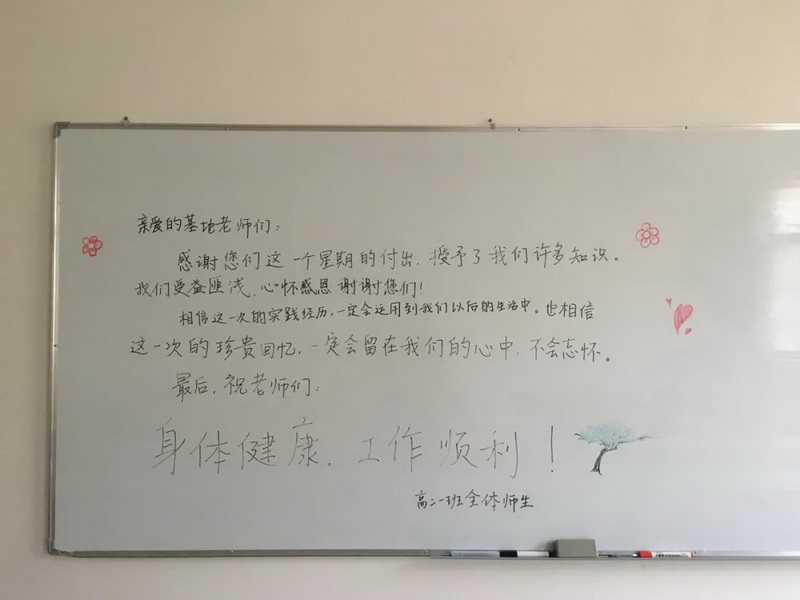 亲爱的基地老师们：
感谢您们这一个星期的付出，授予了我们许多知识。
我们受益匪浅，心怀感恩 谢谢您们！
相信这一次的实践经历，一定会运用到我们以后的生活中。也相信
这一次的珍贵回忆，一定会留在我们的心中，不会忘怀。
最后，祝老师们：
身体健康，工作顺利！
高二一班全体师生